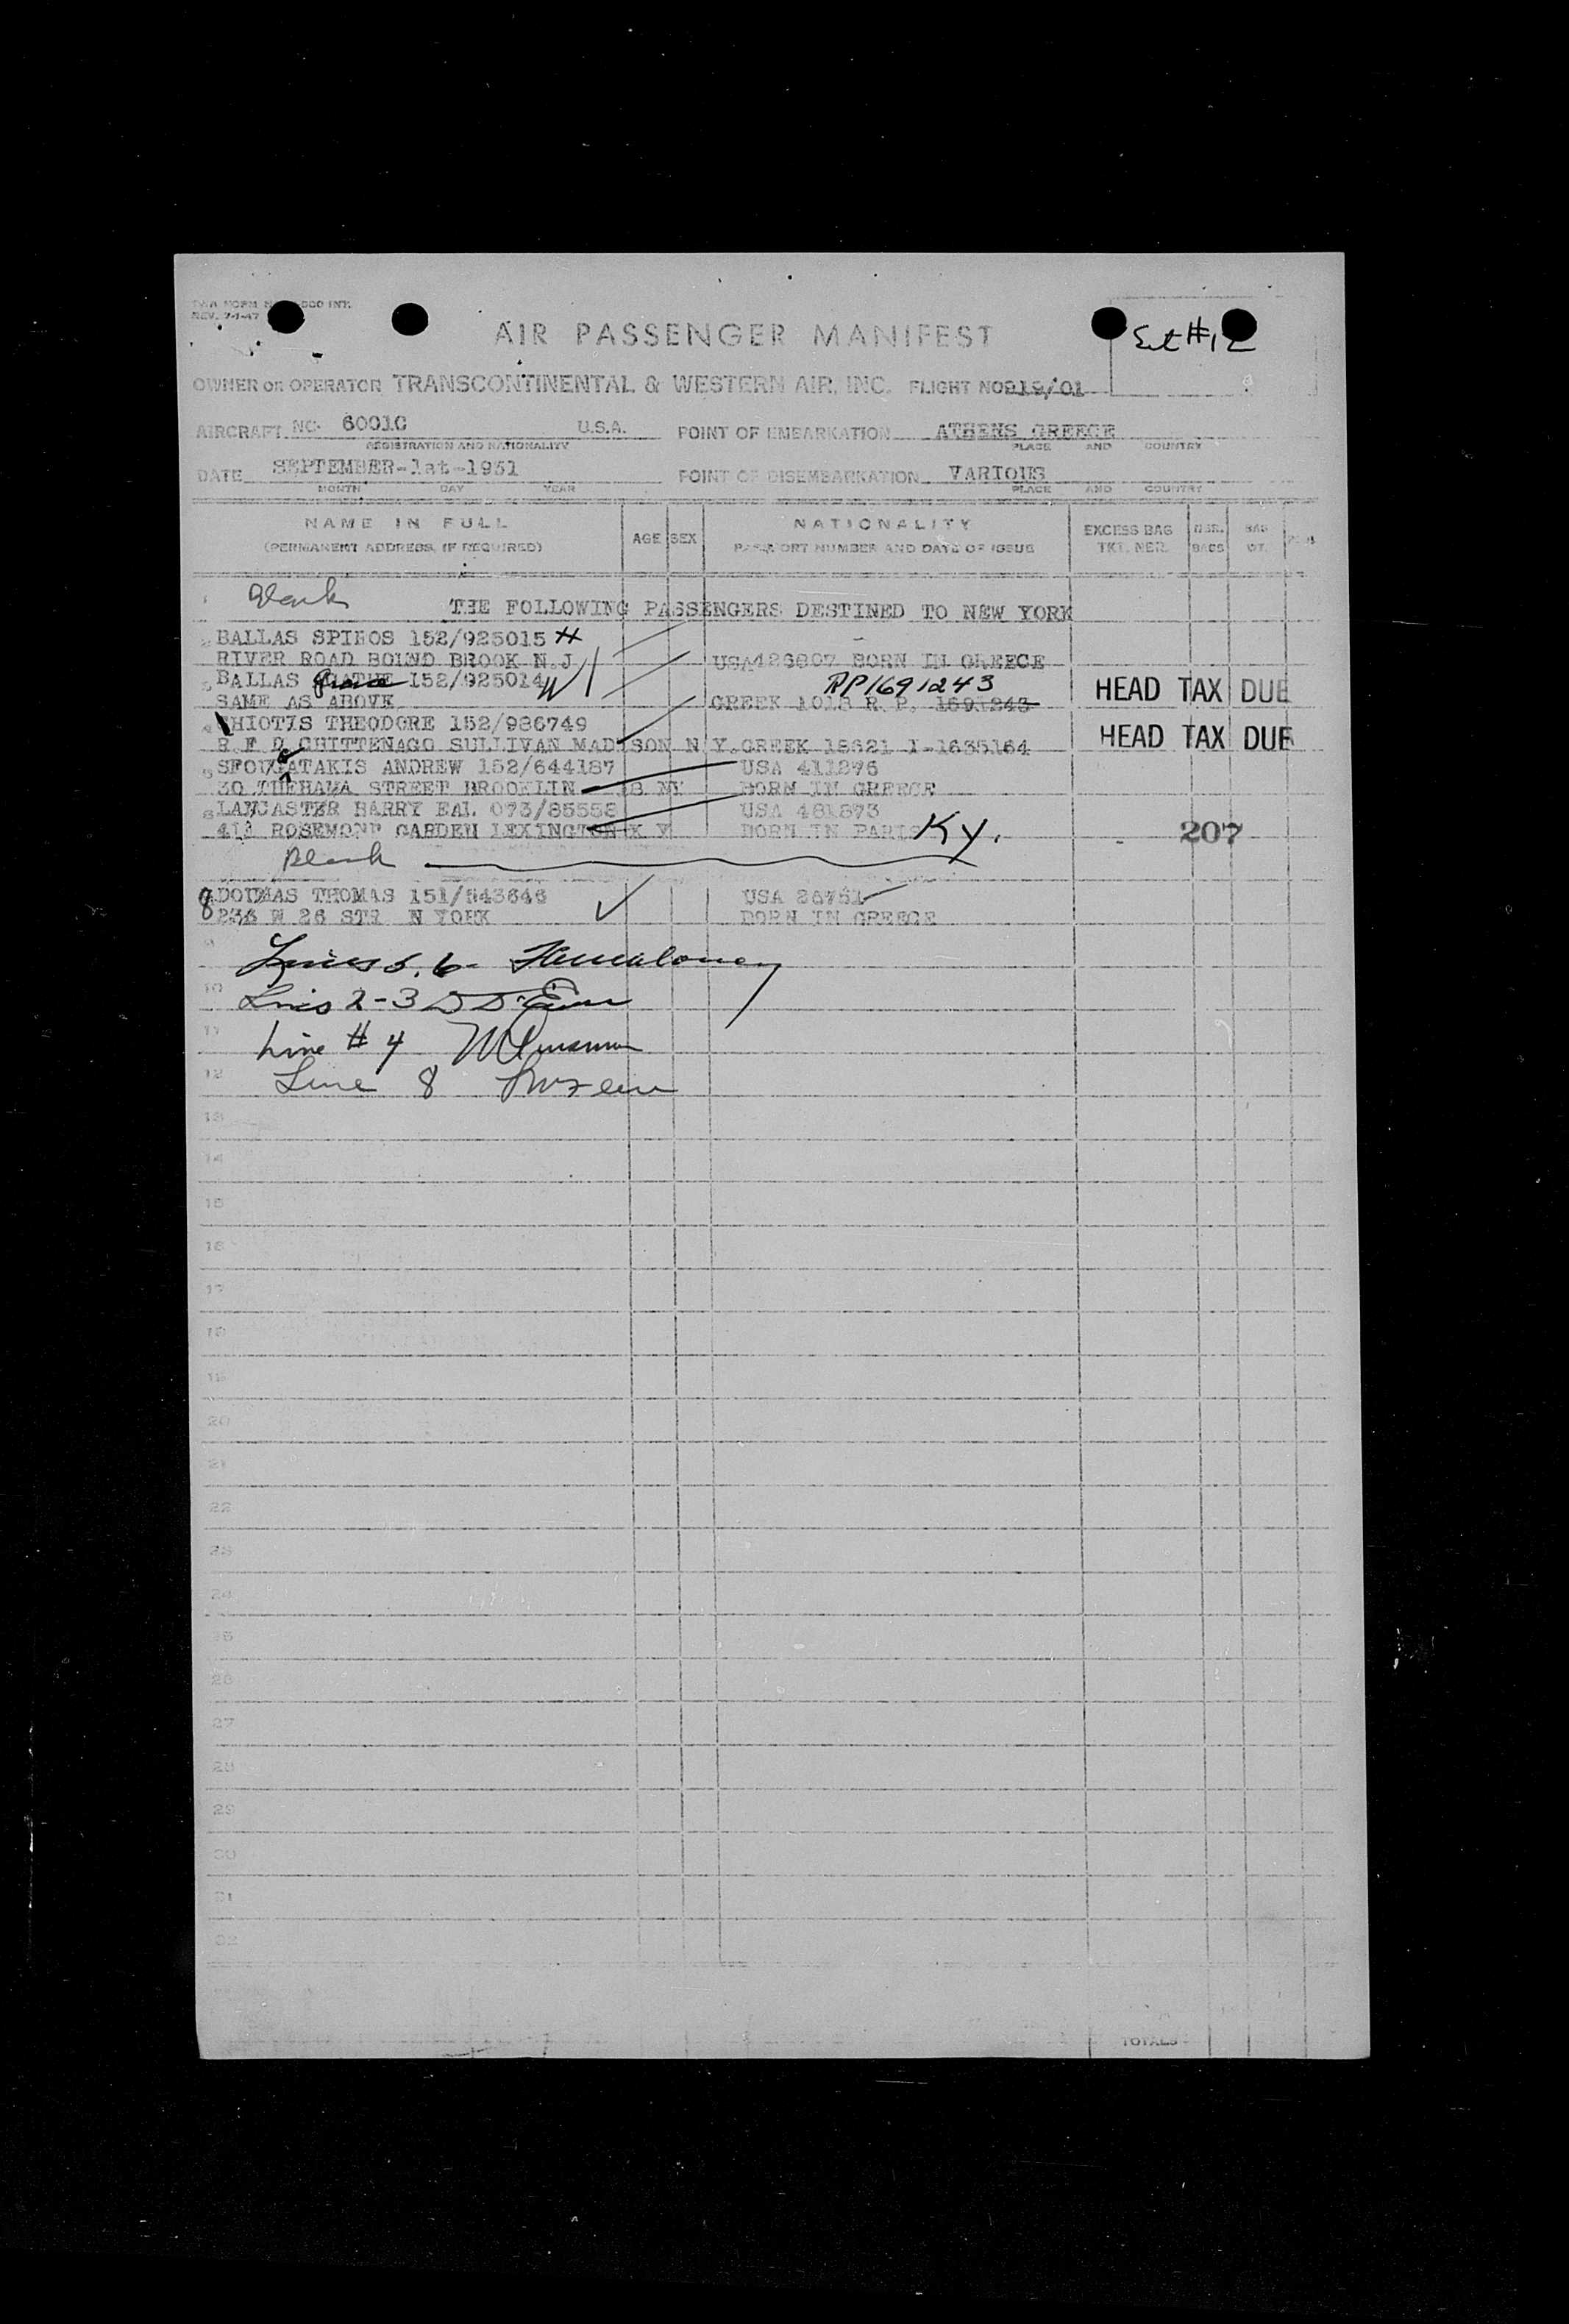 REV. 7-1-47
AIR PASSENGER MANIFEST
OWNER OR OPERATOR TRANSCONTINENTAL & WESTERN AIR, INC. FLIGHT NO 919/01
AIRCRAFT NO. 6001C U.S.A. POINT OF EMBARKATION ATHENS GREECE
REGISTRATION AND NATIONALITY PLACE AND COUNTRY
DATE SEPTEMBER-1st-1951 POINT OF DISEMBARKATION VARIOUS
MONTH DAY YEAR PLACE AND COUNTRY
NAME IN FULL AGE SEX NATIONALITY EXCESS BAG NBR. BAG
(PERMANENT ADDRESS, IF REQUIRED) PASSPORT NUMBER AND DATE OF ISSUE TKT. NBR. BAGS WT.
1 Blank
THE FOLLOWING PASSENGERS DESTINED TO NEW YORK
2 BALLAS SPIROS 152/925015 H
RIVER ROAD BOUND BROOK N.J USA 426807 BORN IN GREECE
3 BALLAS 152/925014 W RP1691243 HEAD TAX DUE
SAME AS ABOVE GREEK 1018 R.P. 1691243
4 HIOTIS THEODORE 152/986749 HEAD TAX DUE
R F D CHITTENAGO SULLIVAN MADISON N Y. GREEK 18621 I-1635164
5 ANDREW 152/644187 USA 411276
30 TEHAMA STREET BROOKLIN NY BORN IN GREECE
6 LANCASTER HARRY EAL 073/85558 USA 481873
413 ROSEMONT GARDEN LEXINGTON K Y BORN IN PARIS Ky. 207
Blank
8 THOMAS 151/543646 USA 26751
236 W 26 STR N YORK BORN IN GREECE
9 Lines 5, 6
10 Lines 2-3
11 Line # 4
12 Line 8
13
14
15
16
17
18
19
20
21
22
23
24
25
26
27
28
29
30
31
32
TOTALS